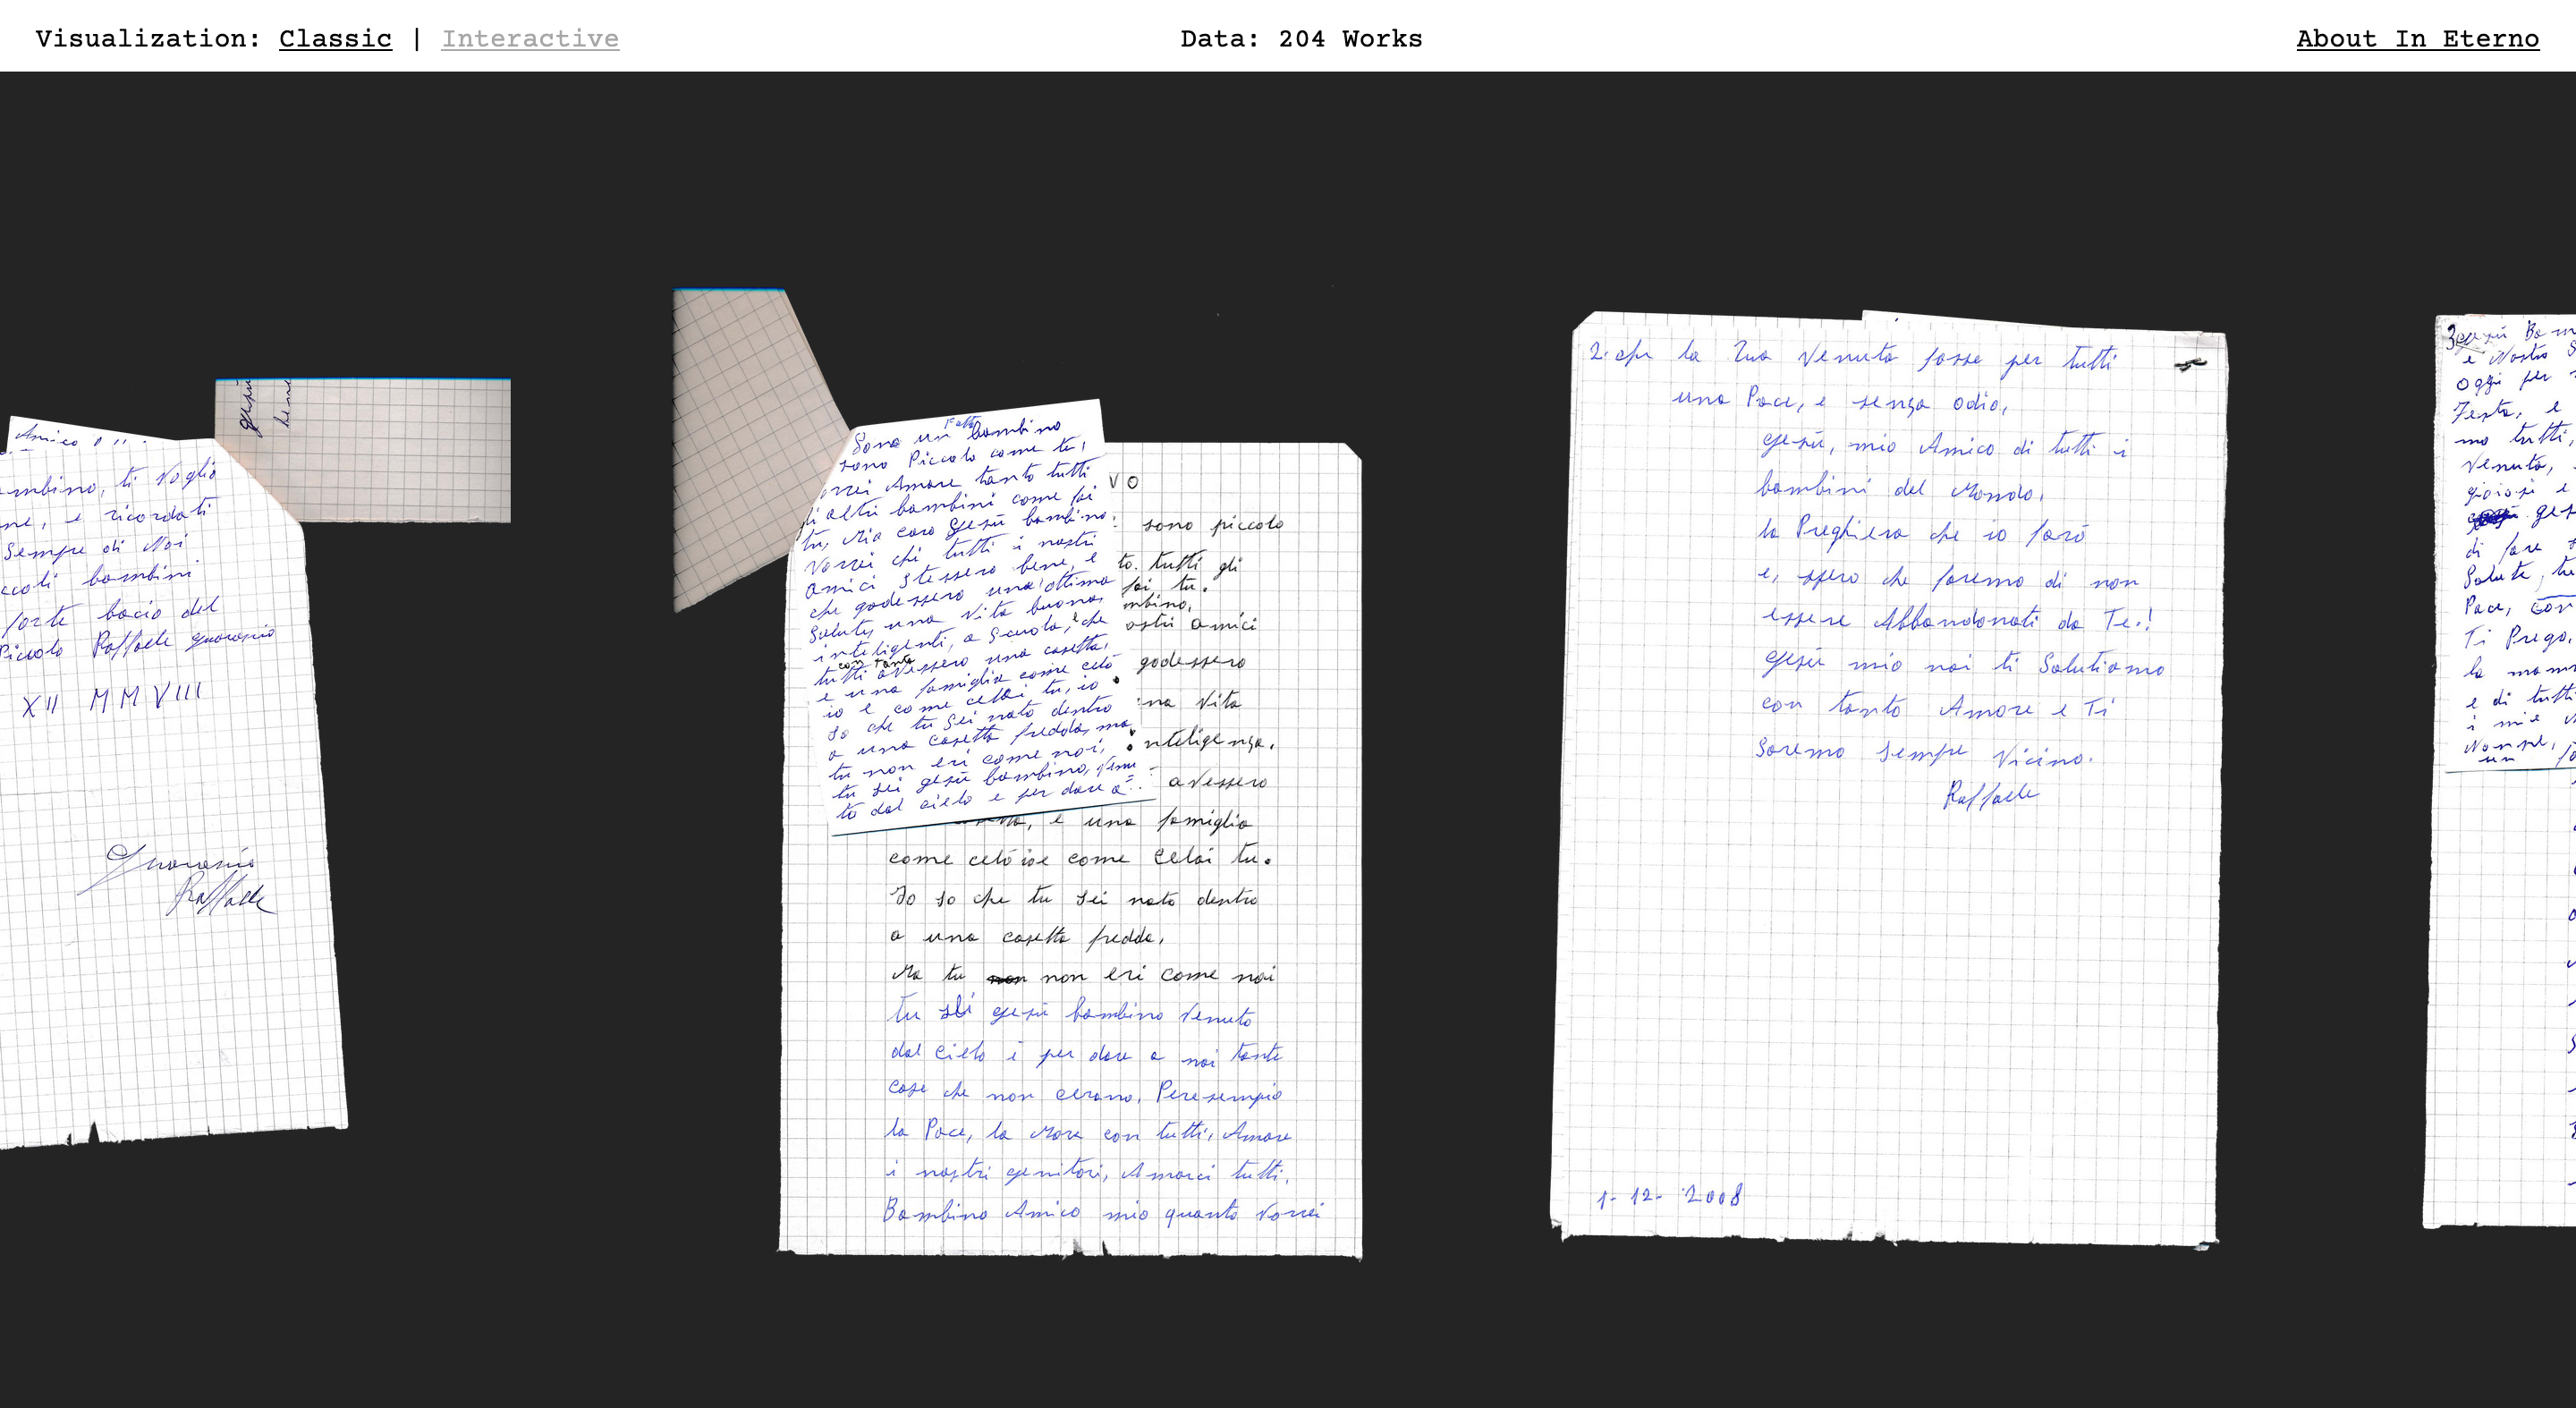 Visualization: Classic | Interactive
Data: 204 Works
About In Eterno
Amico
gesù
bene
ambino, ti Voglio
ne, e ricordati
Sempre di Noi
ccoli bambini
forte bacio del
Piccolo Raffaele Guarasio
XII MMVIII
Raffaele
Sono un bambino
sono Piccolo come te,
orrei Amare tanto tutti
li altri bambini come fai
tu, Mio caro Gesù bambino,
Vorrei chi tutti i nostri
Amici Stessero bene, e
che godessero una ottima
Salute, una Vita buona,
inteligenti, a Scuola, e che
con tanta
tutti avessero una casetta,
e una famiglia come celò
io e come cellai tu, io
so che tu Sei nato dentro
a una casetta fredda, ma
tu non eri come noi,
tu sei gesù bambino, Venu
to dal cielo e per dare a
VO
sono piccolo
to. tutti gli
fai tu.
mbino,
ostri amici
godessero
na Vita
nteligenza.
avessero
e una famiglia
come celò io e come Celai tu.
Io so che tu Sei nato dentro
a una casetta fredda,
Ma tu non non eri come noi
tu sei gesù bambino Venuto
dal Cielo i per dare a noi tante
cose che non cerano, Peresempio
la Pace, la More con tutti, Amare
i nostri genitori, Amarci tutti,
Bambino Amico mio quanto Vorrei
2. che la Tua Venuta fosse per tutti
una Pace, e senza odio,
gesù, mio Amico di tutti i
bambini del Mondo,
la Preghiera che io farò
e, spero che faremo di non
essere Abbandonati da Te.!
gesù mio noi ti Salutiamo
con tanto Amore e Ti
Saremo Sempre Vicino.
Raffaele
1-12-2008
e Nostro S
oggi per
Festa, e
mo tutti,
Venuta,
gioiosi e
ges
di fare
Salute, tu
Pace, con
Ti Prego,
la mam
e di tutti
i mie
Nonne,
un